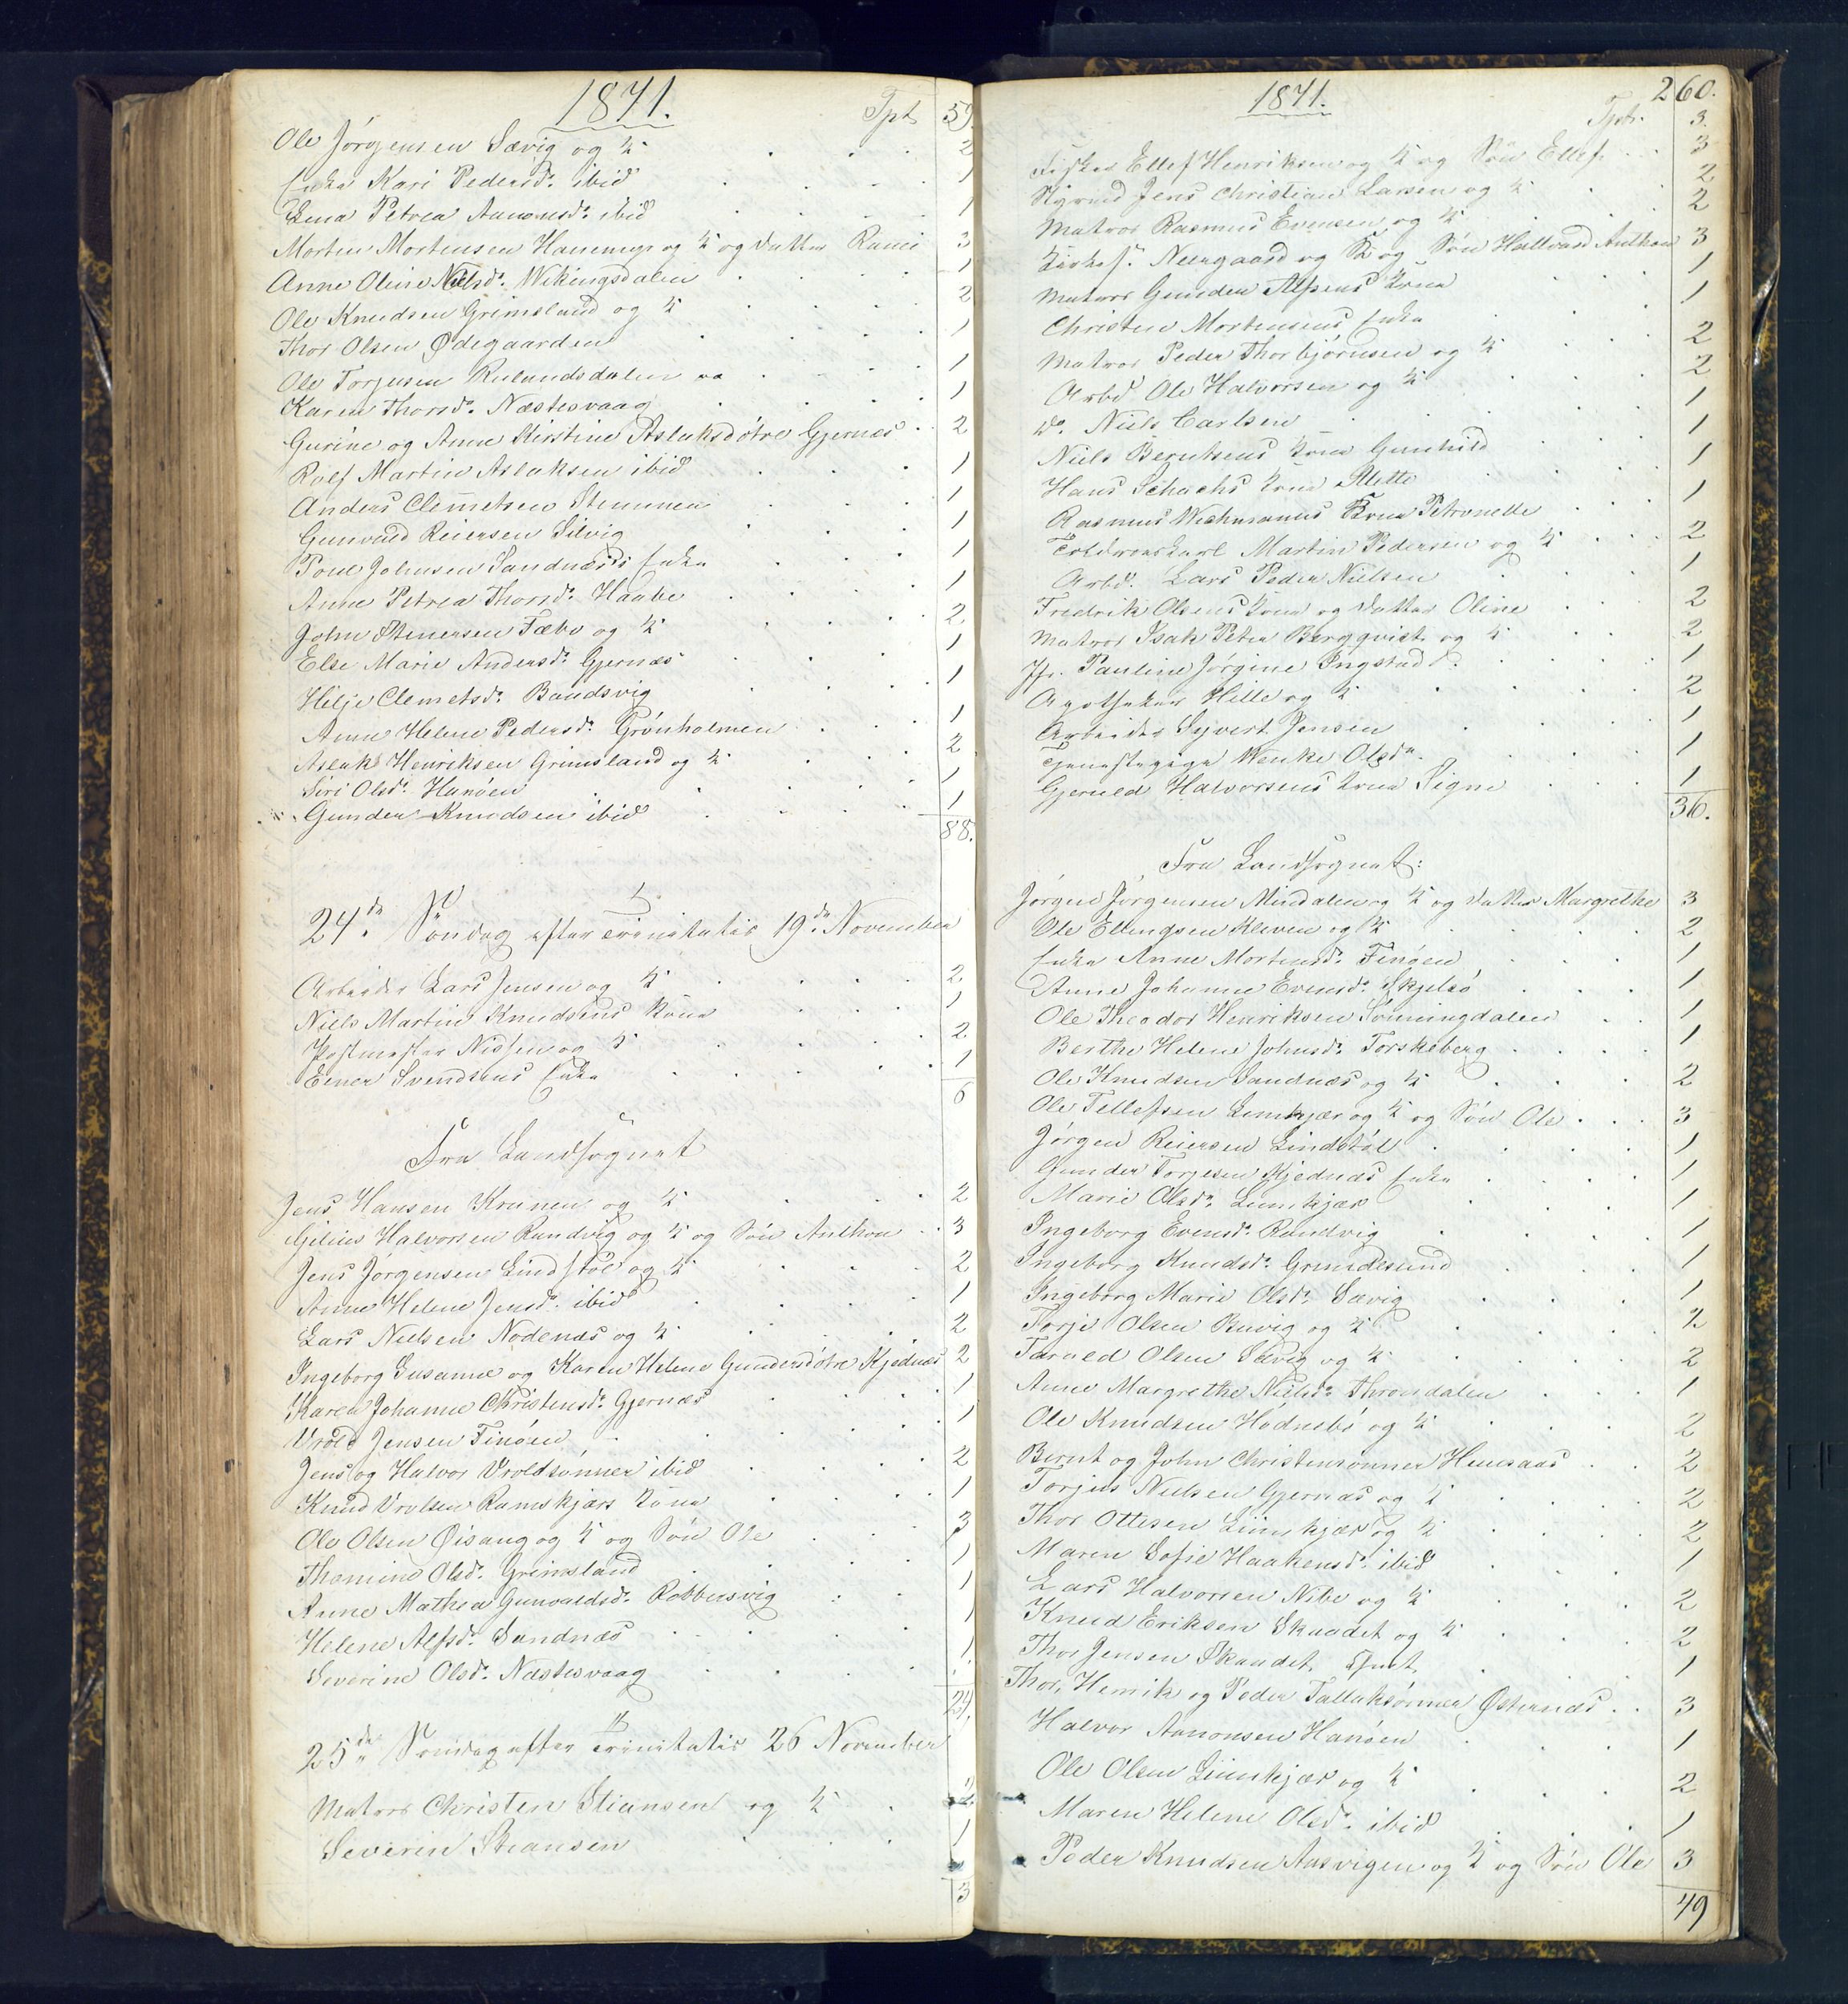 1871.
Tpt. 59.
Ole Jørgensen Sævig og K. 2
Enke Kari Pedersd. ibid 1
Lena Petrea Aanonsd. ibid 1
Morten Mortensen og K. og Datter 3
Anne Oline Nielsd. Wikingsdalen 1
Ole Knudsen Grimsland og K. 2
Thor Olsen Ødegaarden 1
Ole Torjusen 1
Karen Thorsd. Næstesvaag 1
Gurine og Anne Kirstine Aslaksdøtre Gjernæs 2
Rolf Martin Aslaksen ibid 1
Anders Clemetsen Stemmen 1
Gunvald Reiersen Silvig 1
Poul Johnsen Sandnæs's Enke 1
Anne Petrea Thorsd. Haabe 1
John Stenersen Fæbo og K. 2
Else Marie Andersd. Gjernæs 1
Helje Clemetsd. Bandsvig 1
Anne Helene Pedersd. Grønholmen 1
Aslak Henriksen Grimsland og K. 2
Siri Olsd. Hanøen 1
Gunder Knudsen ibid 1
88.
24de Søndag efter Trinitatis 19de November
Arbeider Lars Jensen og K. 2
Niels Martin Knudsens Kone 1
Postmester Nissen og K. 2
Einer Svendsens Enke 1
6
Fra Landsognet
Jens Hansen Krunen og K. 2
Gilius Halvorsen Randvig og K. og Søn Anthon 3
Jens Jørgensen Lindstøl og K. 2
Anne Helene Jensd. ibid 1
Lars Nielsen Nodenæs og K. 2
Ingeborg Susanne og Karen Helene Gundersdøtre Kjødnæs 2
Karen Johanne Christensd. Gjernæs 1
Vrold Jensen Finøen 1
Jens og Halvor Vroldsønner ibid 2
Knud Vrolsen Ramskjærs Kone 1
Ole Olsen Øisang og K. og Søn Ole 3
Thomine Olsd. Grimsland 1
Anne Mathea Gunvaldsd. Robbersvig 1
Helene Alfsd. Sandnæs 1
Severine Olsd. Næstesvaag 1.
24.
25de Søndag efter Trinitatis 26 November
Matros Christen Stiansen og K. 2
Severin Stiansen 1
3
1871.
260.
Tpt. 3.
Fisker Ellef Henriksen og K. og Søn Ellef 3
Styrmd Jens Christian Larsen og K. 2
Matros Rasmus Evensen og K. 2
Neergaard og K. og Søn Hallvard Anthon 3
Matros Gunder Alfsens Kone 1
Christen Mortensens Enke 1
Matros Peder Thorbjørnsen og K. 2
Arbd Ole Halvorsen og K. 2
Do. Niels Carlsen 1
Niels Berntsens Kone Gunhild 1
Hans Schachs Kone Mette 1
Rasmus Wichmanns Kone Petronelle 1
Toldroerskarl Martin Pedersen og K. 2
Arbd. Lars Peder Nielsen 1
Fredrik Olsens Kone og Datter Oline 2
Matros Isak Peter Bergqvist og K. 2
Jfr. Pauline Jørgine Ingstad 1
Apotheker Hille og K. 2
Arbeider Syvert Jensen 1
Tjenestepige Wenke Olsdr. 1
Gjeruld Halvorsens Kone Signe 1
36.
Fra Landsognet:
Jørgen Jørgensen Mindalen og K. og Datter Margrethe 3
Ole Ellingsen Kleven og K. 2
Enke Anne Mortensd. Finøen 1
Anne Johanne Evensd. Skjelsø 1
Ole Theodor Henriksen Sønningdalen 1
Berthe Helene Johnsd. Torskeberg 1
Ole Knudsen Sandnæs og K. 2
Ole Tellefsen Limkjær og K. og Søn Ole 3
Jørgen Reiersen Lindstøl 1
Gunder Torjesen Kjødnæs Enke 1
Marie Olsd. Limkjær 1
Ingeborg Evensd. Randvig 1
Ingeborg Knudsd. Grundesund 1
Ingeborg Marie Olsd. Sævig 1
Torje Olsen Buvig og K. 2
Tarald Olsen Sævig og K. 2
Anne Margrethe Nielsd. Throndalen 1
Ole Knudsen Hødnebø og K. 2
Bernt og John Christensønner Heiesaas 2
Torjus Nielsen Gjernæs og K. 2
Thor Ottesen Limkjær og K. 2
Maren Sofie Haakensd. ibid 1
Lars Halvorsen Nibe og K. 2
Knud Eriksen Skaadet og K. 2
Thor Jensen Skaadet 1
Thor, Henrik og Peder Tallaksønner Østernæs 3
Halvor Aanonsen Hanøen 1
Ole Olsen Limkjær og K. 2
Maren Helene Olsd. ibid 1
Peder Knudsen Aasvigen og K. og Søn Ole 3
49